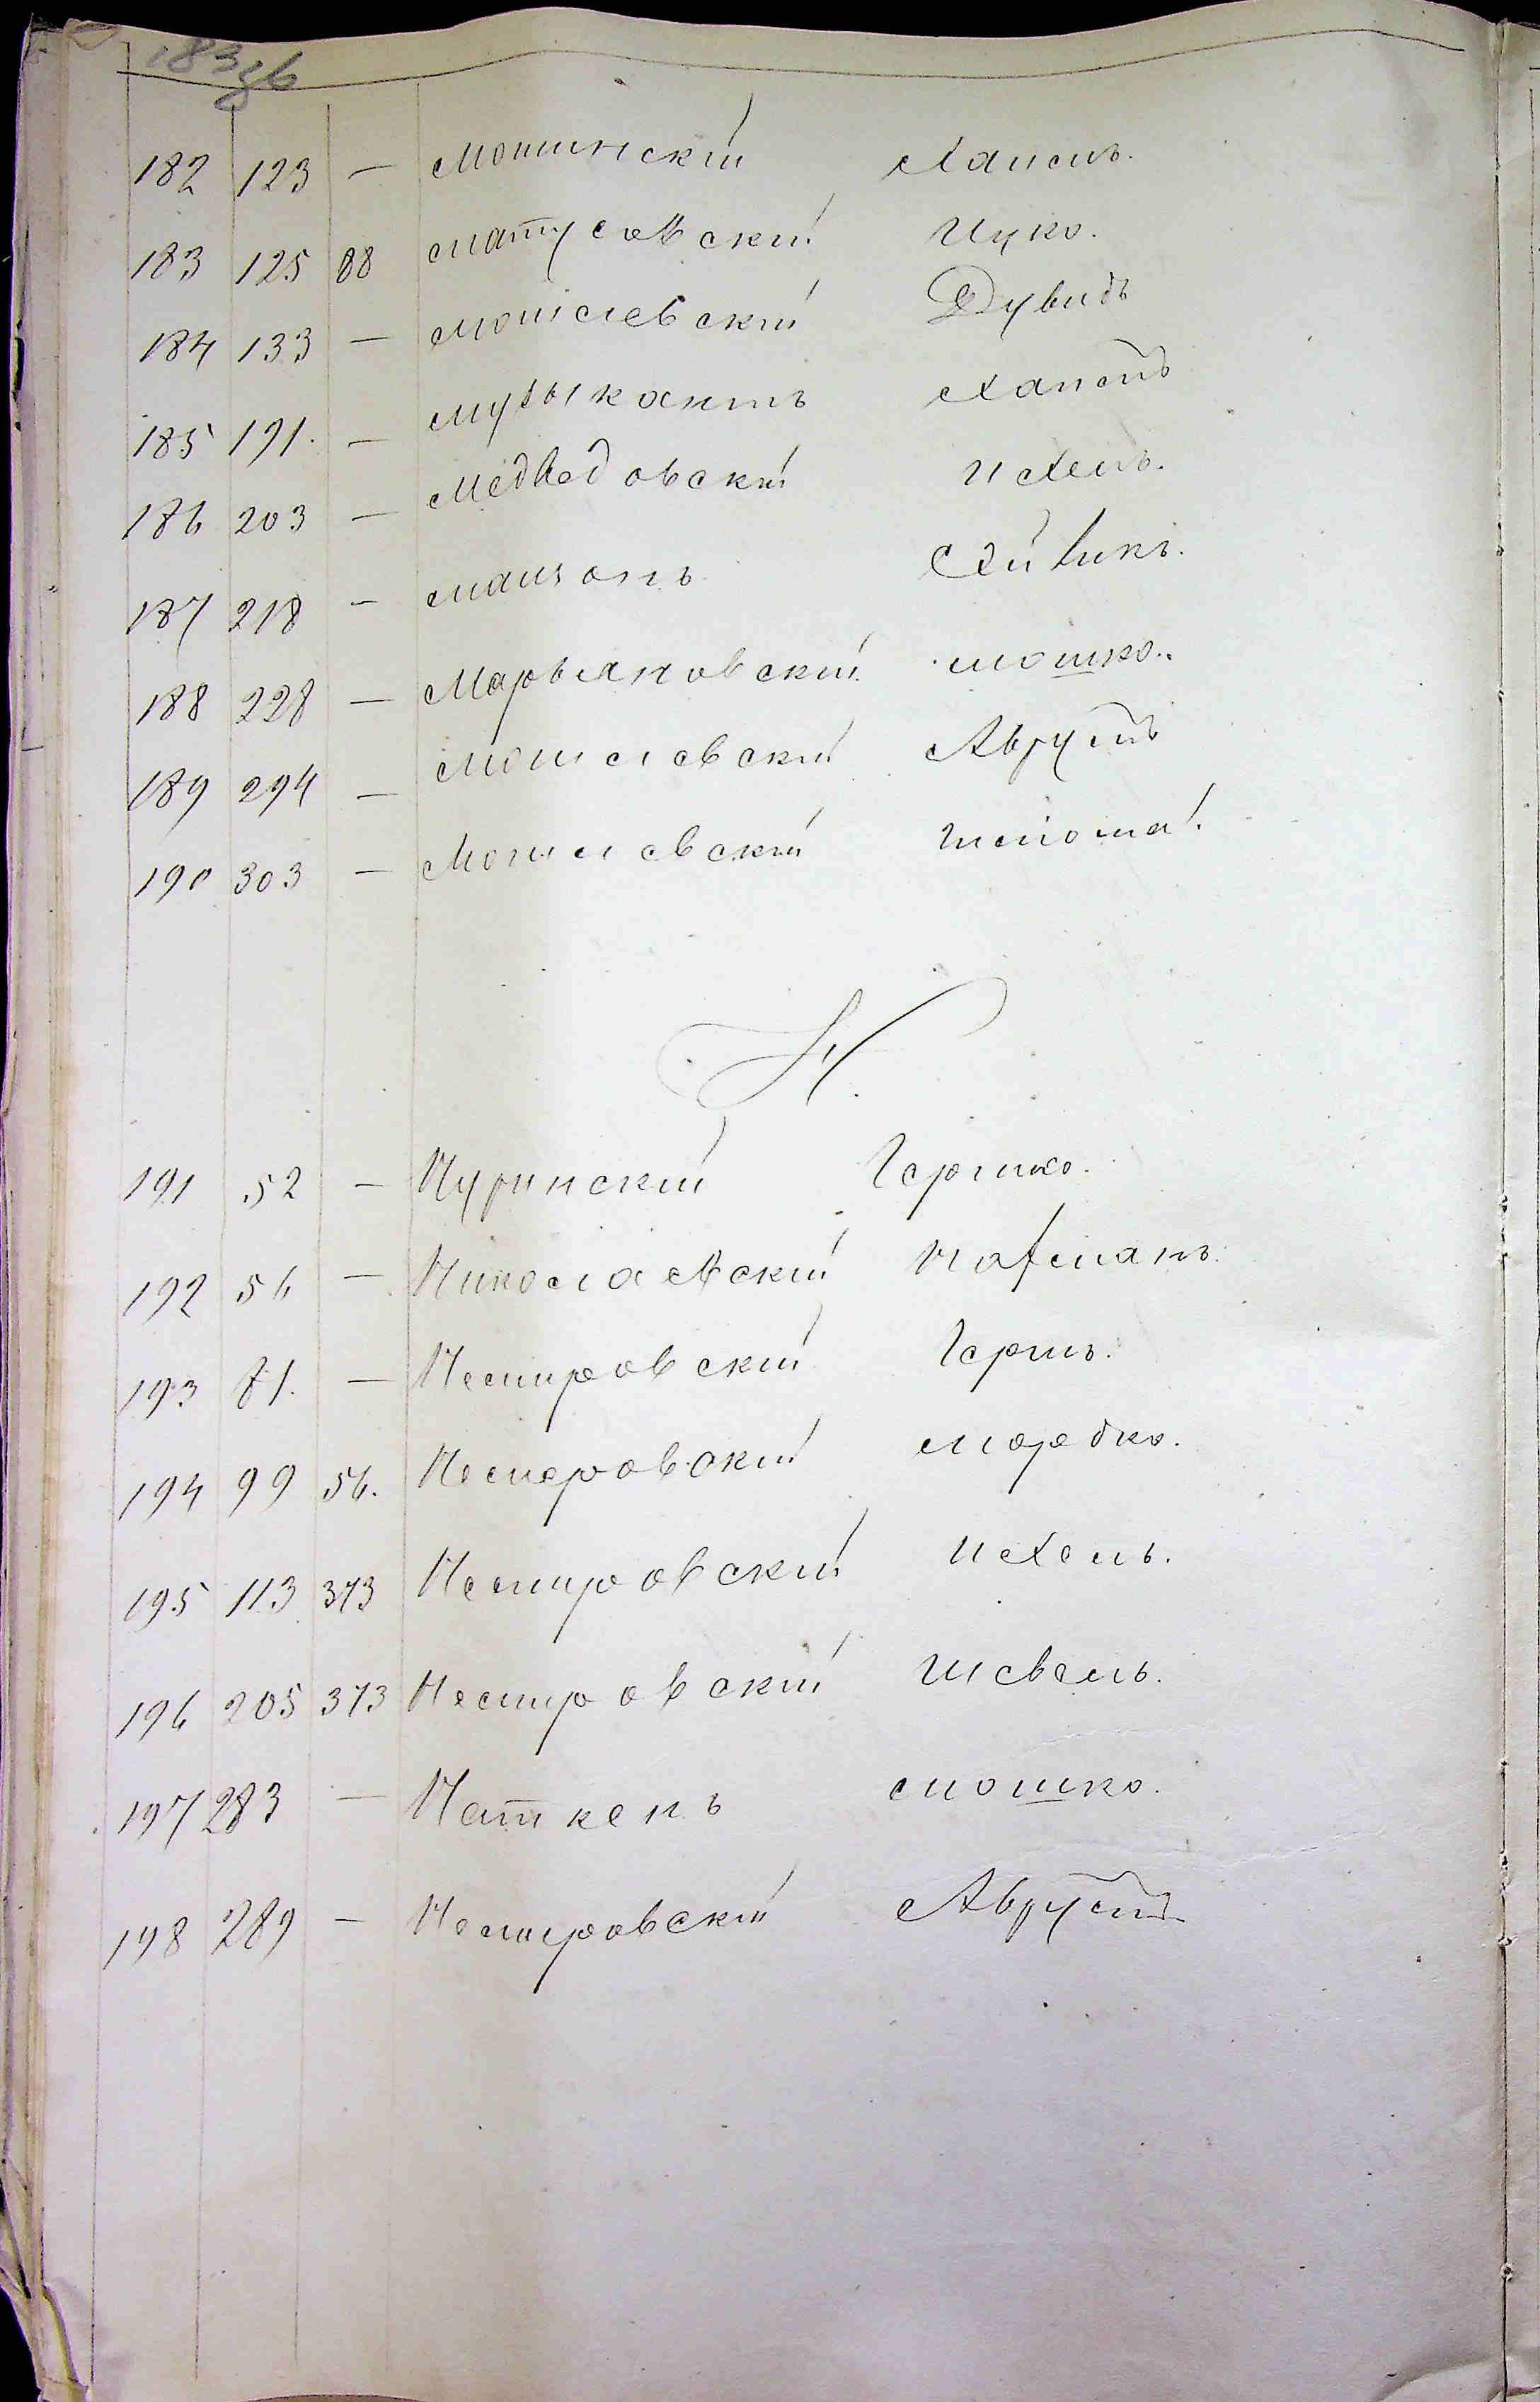 183зв
182 123 — Мошинскій Хаимъ.
183 125 88 Матусовскій Ицко.
184 133 — Могилевскій Дувидъ
185 191. — Музыкантъ Хаимъ
186 203 — Медведовскій Ихель.
187 218 — Мацонъ
188 228 — Марьяновскій Мошко.
189 294 — Могилевскій Аврумъ
190 303 — Могилевскій Шлёма.
Н.
191 52 — Нуринскій Гершко.
192 56 — Николаевскій Нафманъ.
193 81. — Немировскій Гершъ.
194 99 56. Немеровскій Мордко.
195 113 373 Немировскій Ихель.
196 205 373 Немировскій Шевель.
197 283 — Наткенъ Мошко.
198 289 — Немировскій Аврумъ